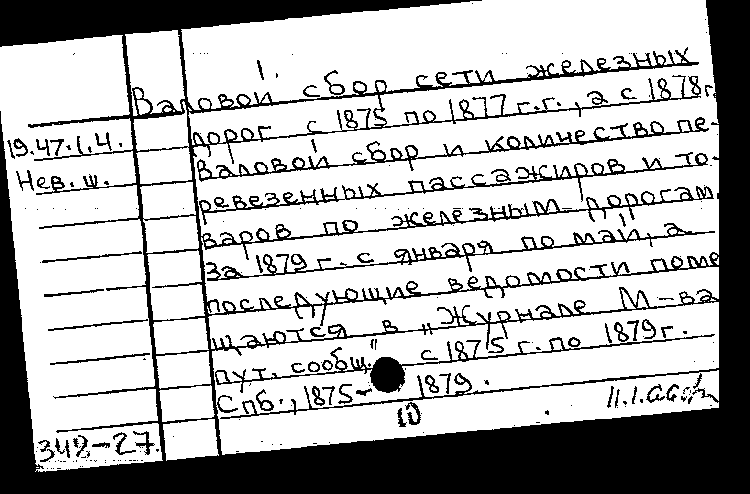 1.
Валовой сбор сети железных
19.47.1.4. дорог с 1875 по 1877 г.г., а с 1878 г.
Нев. ш. валовой сбор и количество пе-
ревезенных пассажиров и то-
варов по железным дорогам.
За 1879 г. с января по май, а
последующие ведомости поме
щаются в „Журнале М-ва
пут. сообщ." с 1875 г. по 1879 г.
Спб., 1875- 1879.
348-27. (1)